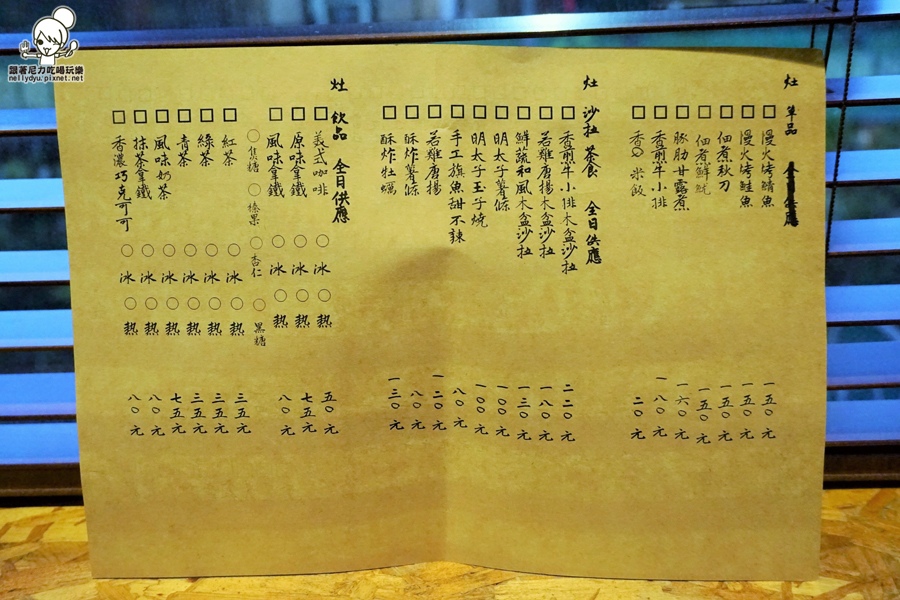 跟著尼力吃喝玩樂
nellydyu.pixnet.net
灶 單品 全日供應
□ 慢火烤鯖魚 一五〇元
□ 慢火烤鮭魚 一五〇元
□ 佃煮秋刀 一五〇元
□ 佃煮鮮魷 一五〇元
□ 豚肋甘露煮 一六〇元
□ 香煎牛小排 一八〇元
□ 香Q米飯 二〇元
灶 沙拉 茶食 全日供應
□ 香煎牛小排木盆沙拉 二二〇元
□ 若雞唐揚木盆沙拉 一八〇元
□ 鮮蔬和風木盆沙拉 一三〇元
□ 明太子薯條 一〇〇元
□ 明太子玉子燒 一〇〇元
□ 手工旗魚甜不辣 八〇元
□ 若雞唐揚 一二〇元
□ 酥炸薯條 八〇元
□ 酥炸牡蠣 一三〇元
灶 飲品 全日供應
□ 義式咖啡 ○冰 ○熱 五〇元
□ 原味拿鐵 ○冰 ○熱 七五元
□ 風味拿鐵 ○冰 ○熱 八〇元
○焦糖 ○榛果 ○杏仁 ○黑糖
□ 紅茶 ○冰 ○熱 三五元
□ 綠茶 ○冰 ○熱 三五元
□ 青茶 ○冰 ○熱 三五元
□ 風味奶茶 ○冰 ○熱 七五元
□ 抹茶拿鐵 ○冰 ○熱 八〇元
□ 香濃巧克可可 ○冰 ○熱 八〇元